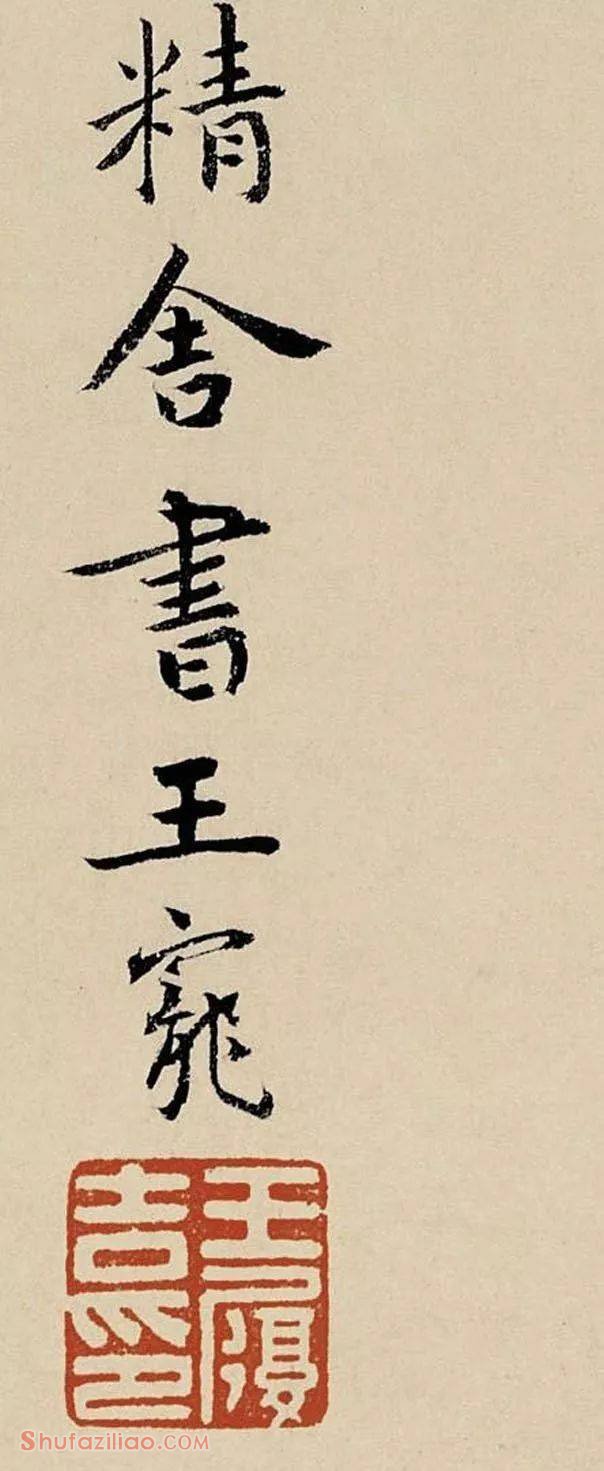 精舍書王寵
王履吉印
Shufaziliao.COM